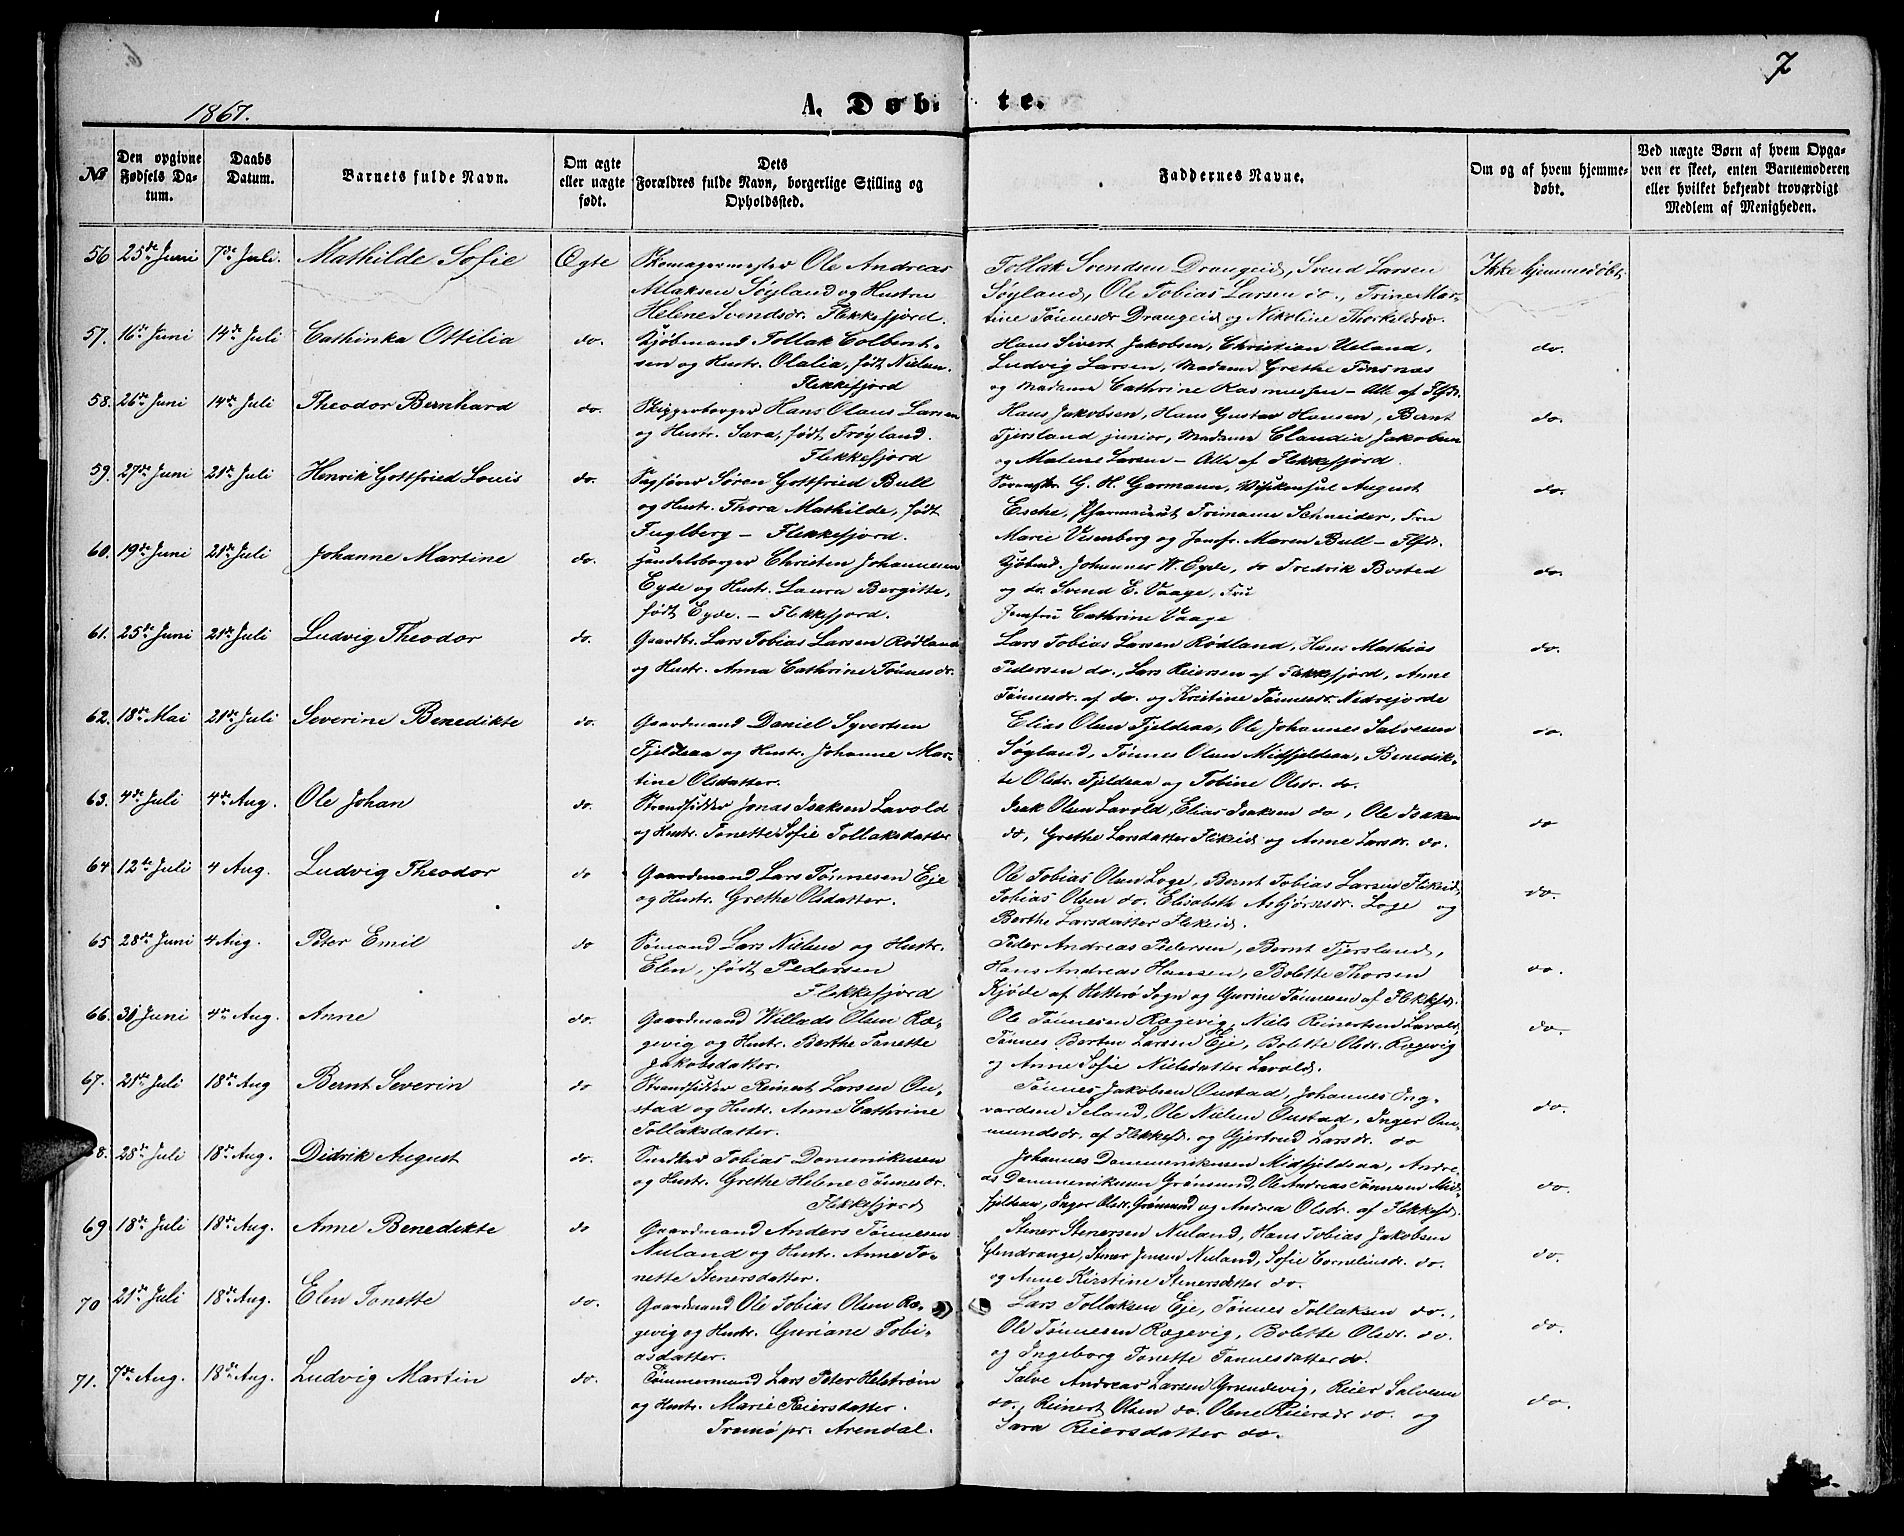 7
1867.
A. Døbte.
№
Den opgivne Fødsels Datum.
Daabs Datum.
Barnets fulde Navn.
Om ægte eller uægte født.
Dets Forældres fulde Navn, borgerlige Stilling og Opholdssted.
Faddernes Navne.
Om og af hvem hjemmedøbt.
Ved uægte Børn af hvem Opgaven er skeet, enten Barnemoderen eller hvilket bekjendt troværdigt Medlem af Menigheden.
56 25de Juni 7de Juli. Mathilde Sofie Ægte
Skomagermester Ole Andreas
Aslaksen Søyland og Hustru
Helene Svendsdr. Flekkefjord.
Tollak Svendsen Drangeid, Svend Larsen
Søyland, Ole Tobias Larsen do., Trine Mar-
tine Tønnesdr Drangeid og Nikoline Thorkildsdr.
Ikke hjemmedøbt.
57. 16de Juni 14de Juli Cathinka Ottilia do.
Kjøbmand Tollak Colbent-
sen og Hustr. Olalia, født Nielsen.
Flekkefjord
Hans Sivert Jakobsen, Christian Ueland,
Ludvig Larsen, Madame Grethe Tinsnæs
og Madame Cathrine Rasmussen - Alle af Flfd.
do.
58. 26de Juni 14de Juli Theodor Bernhard do.
Skipperborger Hans Olaus Larsen
og Hustr. Sara, født Frøyland.
Flekkefjord
Hans Jakobsen, Hans Gustav Hansen, Bernt
Tjersland junior, Madame Claudia Jakobsen
og Malene Larsen - Alle af Flekkefjord.
do.
59. 27de Juni 21de Juli Henrik Gottfried Louis do.
Sagfører Søren Gottfried Bull
og Hustr. Thora Mathilde, født
Fuglberg - Flekkefjord.
G. H. Garmann, Visekonsul August
Esche, Pharmaceut Trimann Schneider, Fru
Marie Vesenberg og Jomfr. Maren Bull - Flfd.
do.
60. 19de Juni 21de Juli Johanne Martine do.
Handelsborger Christen Johannesen
Eyde og Hustr. Laura Bergitte,
født Eyde. - Flekkefjord.
Kjøbmd. Johannes W. Eyde, do Fredrik Busted
og do. Svend E. Vaage, Fru
Jomfru Cathrine Vaage
do.
61. 25de Juni 21de Juli Ludvig Theodor do.
Gaardbr. Lars Tobias Larsen Rødland
og Hustr. Anna Cathrine Tønnesdr.
Lars Tobias Larsen Rødland, Hans Mathias
Pedersen do., Lars Reiersen af Flekkefjord, Anne
Tønnesdr. af do. og Kristine Tønnesdr. Nedrejorde
do.
62. 18de Mai 21de Juli Severine Benedikte do.
Gaardmand Daniel Syvertsen
Fjeldsaa og Hustr. Johanne Mar-
tine Olsdatter.
Elias Olsen Fjeldsaa, Ole Johannes Salvesen
Søyland, Tønnes Olsen Midfjeldsaa, Benedik-
te Olsdr. Fjeldsaa og Tobine Olsdr. do.
do.
63. 4de Juli 4de Aug. Ole Johan do.
Strandsidder Jonas Isaksen Lavold
og Hustr. Tonette Sofie Tollaksdatter
Isak Olsen Lavold, Elias Isaksen do, Ole Isaksen
do, Grethe Larsdatter Flikeid og Anne Larsdr. do.
do
64 12te Juli 4 Aug. Ludvig Theodor do
Gaardmand Lars Tønnesen Eje
og Hustr. Grethe Olsdatter.
Ole Tobias Olsen Loge, Bernt Tobias Larsen Flikeid,
Tobias Olsen do. Elisabeth Asbjørnsdr. Loge og
Berthe Larsdatter Flikeid.
do.
65 28de Juni 4 Aug. Peter Emil do
Sømand Lars Nielsen og Hustr.
Elen, født Pedersen
Flekkefjord
Peder Andreas Pedersen, Bernt Tjersland,
Hans Andreas Hansen, Bolette Thorsen
Kjøde af Hetterø Sogn og Gurine Tønnesen af Flekkefd.
do.
66. 30 Juni 4de Aug. Anne do.
Gaardmand Willads Olsen Ræ-
gevig og Hustr. Berthe Tonette
Jakobsdatter.
Ole Tønnesen Rægevig, Niels Reinertsen Lavold,
Tønnes Berton Larsen Eje, Bolette Olsdr. Rægevig
og Anne Sofie Nielsdatter Lavold.
do.
67. 21de Juli 18de Aug Bernt Severin do
Strandsidder Reinert Larsen Ou-
stad og Hustr. Anne Cathrine
Tollaksdatter.
Tønnes Jakobsen Oustad, Johannes Ing-
vardsen Seland, Ole Nielsen Oustad, Inger Om-
mundsdr. af Flekkefd. og Gjertrud Larsdr. do
do.
68. 28de Juli 18de Aug. Didrik August do.
Snedker Tobias Dommenikusen
og Hustr. Grethe Helene Tønnesdr.
Flekkefjord
Johannes Dommenikusen Midfjeldsaa, Andre-
as Dommenikusen Grønsund, Ole Andreas Tønnesen Mid-
fjeldsaa, Inger Olsdr. Grønsund og Andrea Olsdr. af Flekkefd.
do.
69. 18de Juli 18de Aug. Anne Benedikte do
Gaardmand Anders Tønnesen
Nuland og Hustr. Anne To-
nette Stenersdatter.
Stener Stenersen Nuland, Hans Tobias Jakobsen
Glendrange, Stener Jensen Nuland, Sofie Corneliusdr. do.
og Anne Kirstine Stenersdatter do.
do.
70 21de Juli 18de Aug. Elen Tonette do.
Gaardmand Ole Tobias Olsen Ræ-
gevig og Hustr. Guriane Tobi-
asdatter.
Lars Tollaksen Eje, Tønnes Tollaksen do.,
Ole Tønnesen Rægevig, Bolette Olsdr. do.
og Ingeborg Tonette Tønnesdatter do.
do.
71. 7de Aug. 18de Aug. Ludvig Martin do.
Tømmermand Lars Peter Helstrøm
og Hustr. Marie Reiersdatter.
Tromø pr. Arendal.
Salve Andreas Larsen Grundevig, Reier Salvesen
do., Reinert Olsen do. Olene Reiersdr do. og
Sara Reiersdatter do.
do.